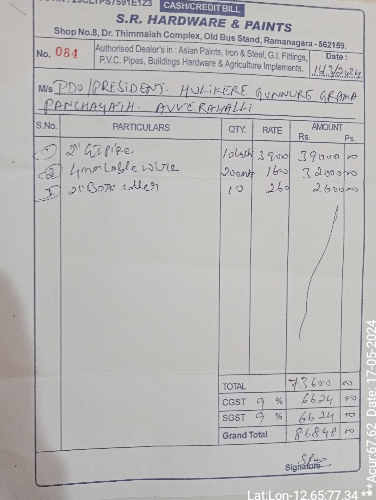 CASH/CREDIT BILL
S.R. HARDWARE & PAINTS
Shop No.8, Dr. Thimmaiah Complex, Old Bus Stand, Ramanagara - 562159.
No. 081 Authorised Dealer's in : Asian Paints, Iron & Steel, G.I. Fittings, P.V.C. Pipes, Buildings Hardware & Agriculture Implements. Date :
M/s PDO/PRESIDENT. HULIKERE GUNNURE GRAMA
PANCHAYATH. AVVERAHALLI
S.No. PARTICULARS QTY. RATE AMOUNT
Rs. Ps.
1 2" GI Pipe 3900 39000 00
2 200 160 32000 00
3 2" 10 260 2600 00
TOTAL 73600 00
CGST 9 % 6624 00
SGST 9 % 6624 00
Grand Total 86848 00
Signature
Lat:Lon-12.65:77.34
**Acur:67.62 Date: 17-05-2024